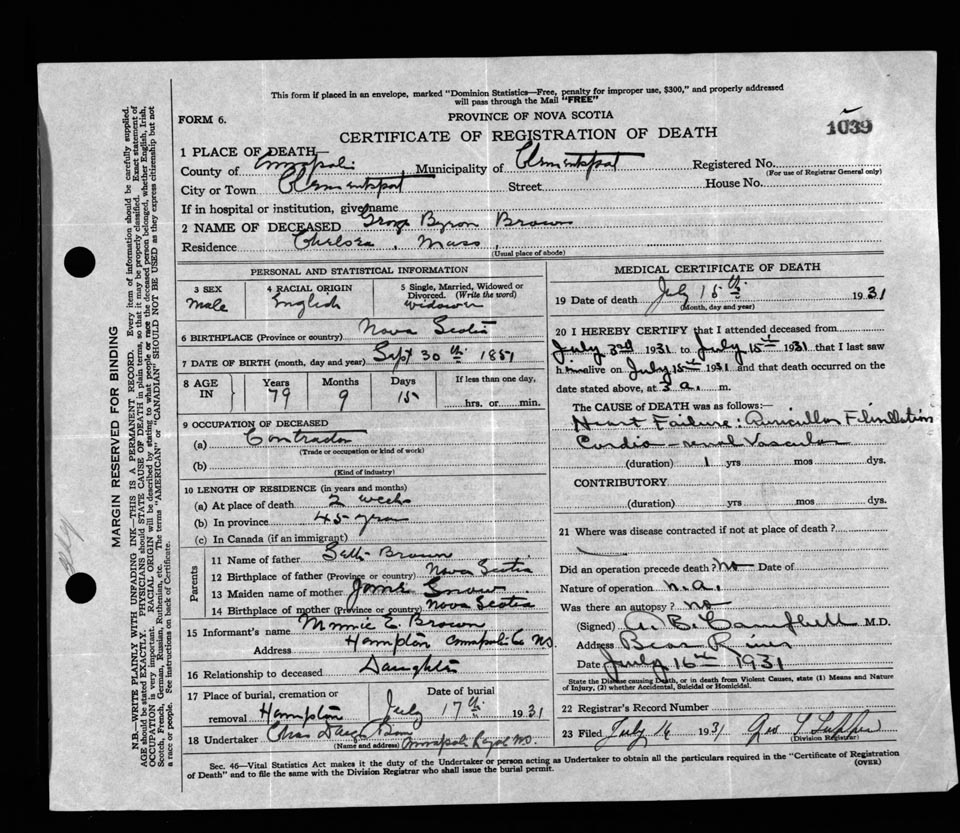 This form if placed in an envelope, marked "Dominion Statistics—Free, penalty for improper use, $300," and properly addressed
will pass through the Mail "FREE"
FORM 6.
PROVINCE OF NOVA SCOTIA
CERTIFICATE OF REGISTRATION OF DEATH
1039
1 PLACE OF DEATH—
County of Annapolis Municipality of Clementsport Registered No.
(For use of Registrar General only)
City or Town Clementsport Street House No.
If in hospital or institution, give name
2 NAME OF DECEASED George Byron Brown
Residence Chelsea, Mass,
(Usual place of abode)
PERSONAL AND STATISTICAL INFORMATION
3 SEX 4 RACIAL ORIGIN 5 Single, Married, Widowed or
Divorced. (Write the word)
Male English Widower
6 BIRTHPLACE (Province or country) Nova Scotia
7 DATE OF BIRTH (month, day and year) Sept 30th 1851
8 AGE IN Years Months Days If less than one day,
79 9 15 hrs. or min.
9 OCCUPATION OF DECEASED
(a) Contractor
(Trade or occupation or kind of work)
(b)
(Kind of industry)
10 LENGTH OF RESIDENCE (in years and months)
(a) At place of death 2 weeks
(b) In province 45 years
(c) In Canada (if an immigrant)
Parents
11 Name of father Seth Brown
12 Birthplace of father (Province or country) Nova Scotia
13 Maiden name of mother Snow
14 Birthplace of mother (Province or country) Nova Scotia
15 Informant's name Minnie E. Brown
Address Hampton Annapolis Co NS.
16 Relationship to deceased Daughter
17 Place of burial, cremation or Date of burial
removal Hampton July 17th 1931
18 Undertaker Chas
(Name and address) Annapolis Royal NS.
MEDICAL CERTIFICATE OF DEATH
19 Date of death July 15th 1931
(Month, day and year)
20 I HEREBY CERTIFY that I attended deceased from
July 3rd 1931 to July 15th 1931 that I last saw
him alive on July 15th 1931 and that death occurred on the
date stated above, at 3 a. m.
The CAUSE OF DEATH was as follows:—
Heart Failure: Auricular Fibrillation
Cardio-renal Vascular
(duration) 1 yrs mos dys.
CONTRIBUTORY
(duration) yrs mos dys.
21 Where was disease contracted if not at place of death?
Did an operation precede death? no Date of
Nature of operation n.a.
Was there an autopsy? no
(Signed) A. B. Campbell M.D.
Address Bear River
Date July 16th 1931
State the Disease causing Death, or in death from Violent Causes, state (1) Means and Nature
of Injury, (2) whether Accidental, Suicidal or Homicidal.
22 Registrar's Record Number
23 Filed July 16 1931 Geo Tupper
(Division Registrar)
Sec. 46—Vital Statistics Act makes it the duty of the Undertaker or person acting as Undertaker to obtain all the particulars required in the "Certificate of Registration
of Death" and to file the same with the Division Registrar who shall issue the burial permit.
(OVER)
MARGIN RESERVED FOR BINDING
N.B.—WRITE PLAINLY WITH UNFADING INK—THIS IS A PERMANENT RECORD. Every item of information should be carefully supplied.
AGE should be stated EXACTLY. PHYSICIANS should STATE CAUSE OF DEATH in plain terms, so that it may be properly classified. Exact statement of
OCCUPATION is very important. RACIAL ORIGIN will be described by stating to what people or race the deceased person belonged, whether English, Irish,
Scotch, French, German, Russian, Ruthenian, etc. The terms "AMERICAN" or "CANADIAN" SHOULD NOT BE USED as they express citizenship but not
a race or people. See instructions on back of Certificate.